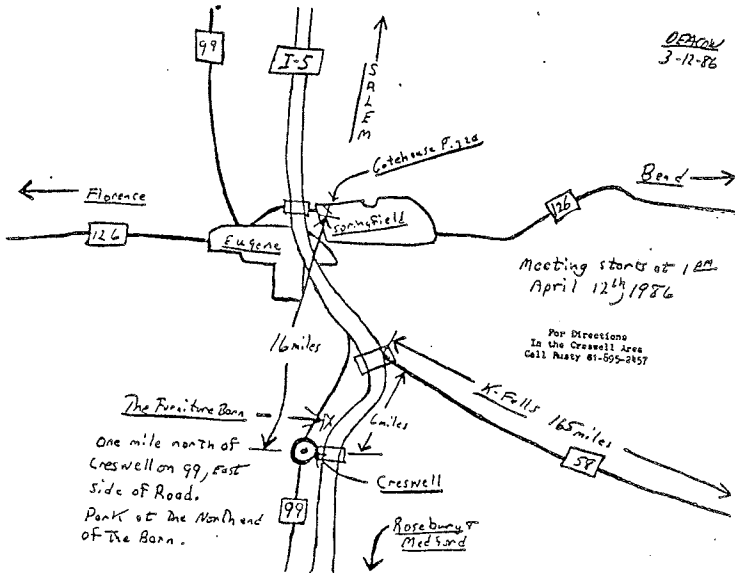 DEACON
3-12-86
99
I-5
SALEM
Gatehouse Pizza
Bend
Florence
126
Springfield
126
Eugene
Meeting starts at 1 PM
April 12th, 1986
For Directions
In the Creswell Area
Call Rusty 61-895-2457
16 miles
K-Falls 165 miles
The Furniture Barn
6 miles
One mile north of
Creswell on 99, East
Side of Road.
Park at the North end
of The Barn.
58
Creswell
99
Rosebury &
Medford